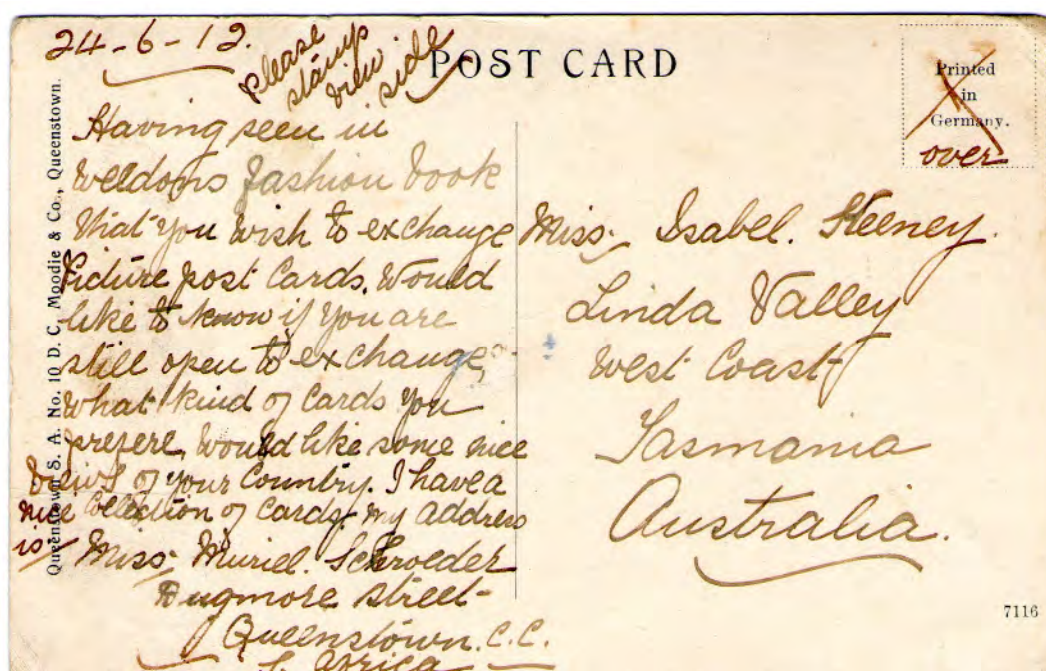 24-6-12.
please
stamp
view
side
POST CARD
Printed
in
Germany.
over
Having seen in
Weldons fashion book
that you wish to exchange
Picture post Cards. Would
like to know if you are
still open to exchange,
What kind of Cards you
prefere, Would like some nice
of your Country. I have a
nice Collection of Cards, my address
is Miss. Muriel. Schroeder
Dugmore Street
Queenstown. C.C.
S. Africa
Miss. Isabel. Heeney.
Linda Valley
West Coast
Tasmania
Australia.
Queenstown S. A. No. 10 D. C. Moodie & Co., Queenstown.
7116